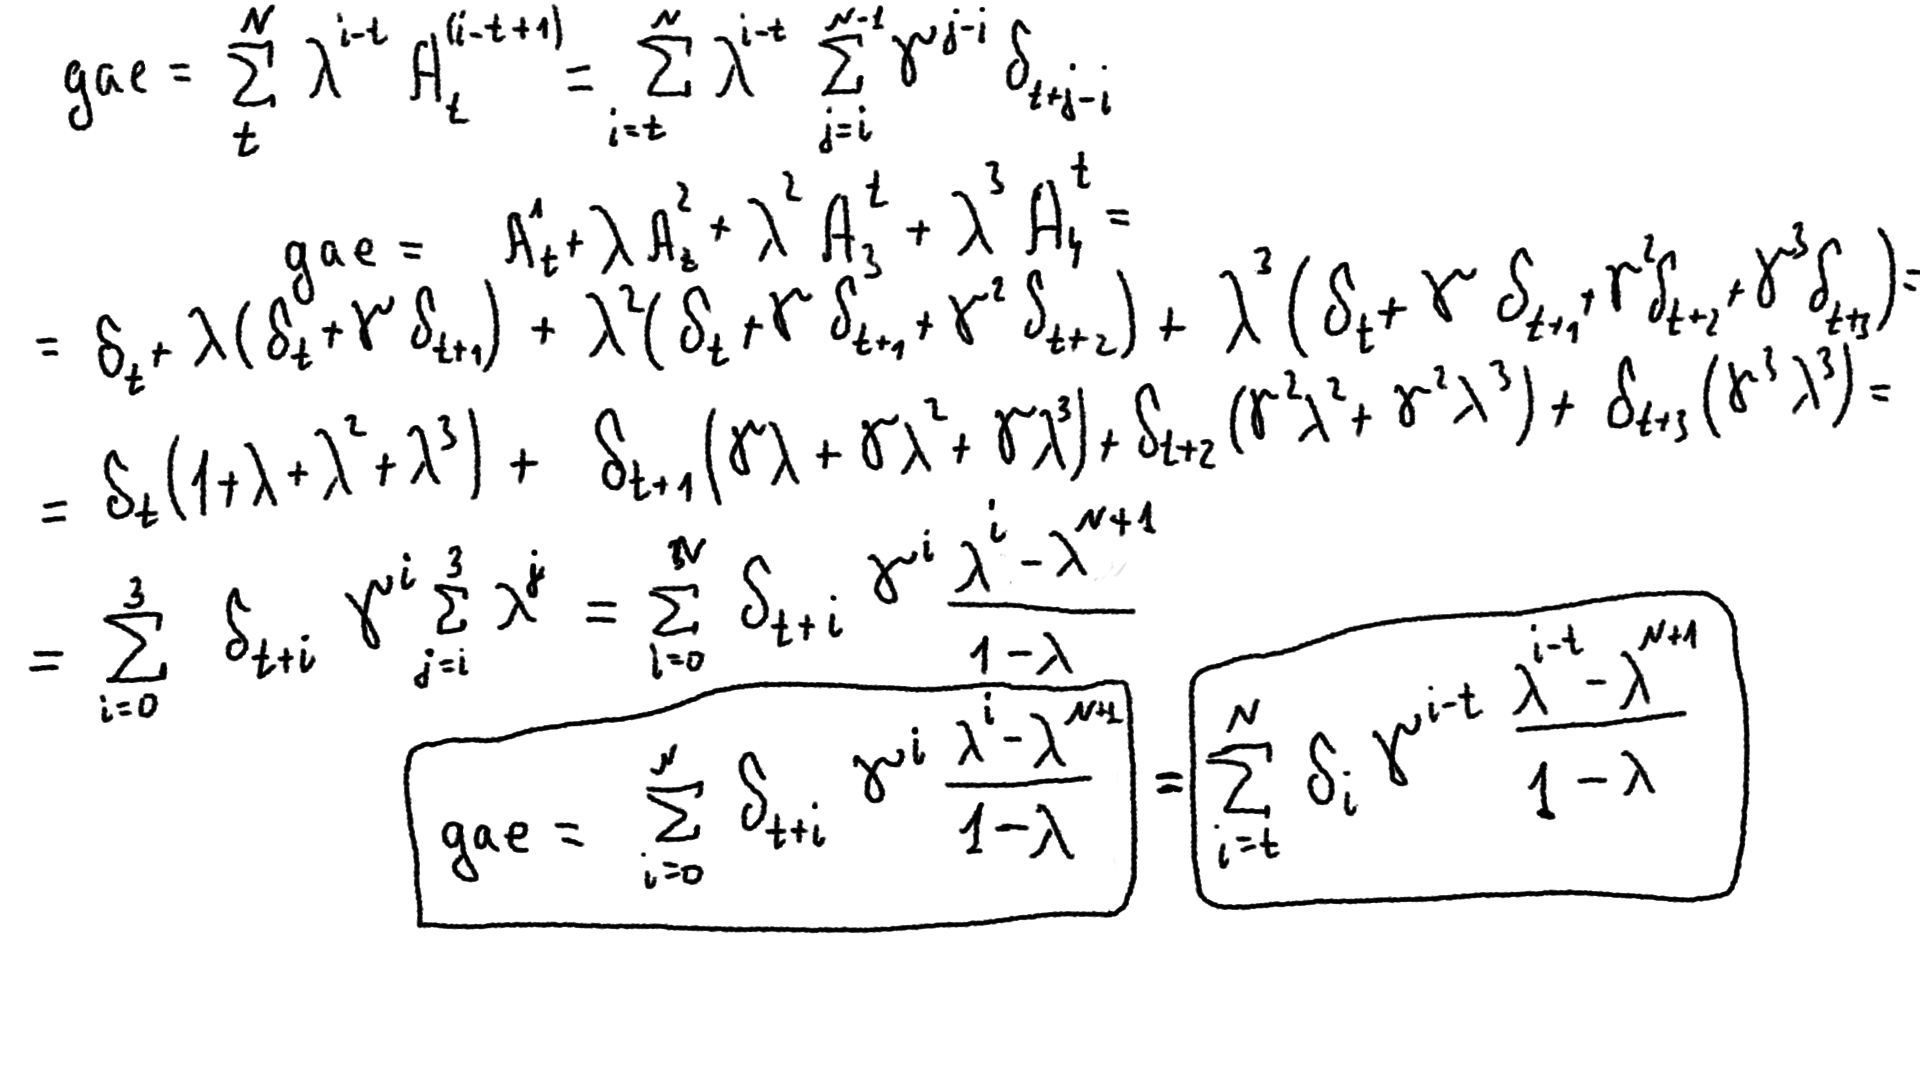 gae = \sum_{t}^{N} λ^{i-t} A_t^{(i-t+1)} = \sum_{i=t}^{N} λ^{i-t} \sum_{j=i}^{N-1} γ^{j-i} δ_{t+j-i}
gae = A_t^1 + λ A_t^2 + λ^2 A_3^t + λ^3 A_4^t =
= δ_t + λ(δ_t + γ δ_{t+1}) + λ^2(δ_t + γ δ_{t+1} + γ^2 δ_{t+2}) + λ^3(δ_t + γ δ_{t+1} + γ^2 δ_{t+2} + γ^3 δ_{t+3}) =
= δ_t(1+λ+λ^2+λ^3) + δ_{t+1}(γλ + γλ^2 + γλ^3) + δ_{t+2}(γ^2λ^2 + γ^2λ^3) + δ_{t+3}(γ^3λ^3) =
= \sum_{i=0}^{3} δ_{t+i} γ^i \sum_{j=i}^{3} λ^j = \sum_{i=0}^{N} δ_{t+i} γ^i \frac{λ^i - λ^{N+1}}{1-λ}
gae = \sum_{i=0}^{N} δ_{t+i} γ^i \frac{λ^i - λ^{N+1}}{1-λ} = \sum_{i=t}^{N} δ_i γ^{i-t} \frac{λ^{i-t} - λ^{N+1}}{1-λ}